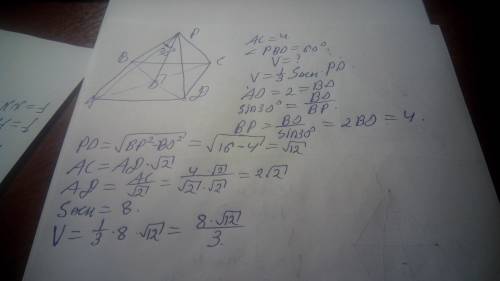 P
30°
B
C
O
A
D
AC=4.
∠PBO=60°.
V=?
V=1/3 Sосн·PO.
AO=2=BO
Sin30°=BO/BP.
BP=BO/sin30°=2BO=4.
PO=√(BP²-BO²)=√(16-4)=√12
AC=AD·√2
AD=AC/√2=4·√2/(√2·√2)=2√2
Sосн=8.
V=1/3·8·√12=8·√12/3.